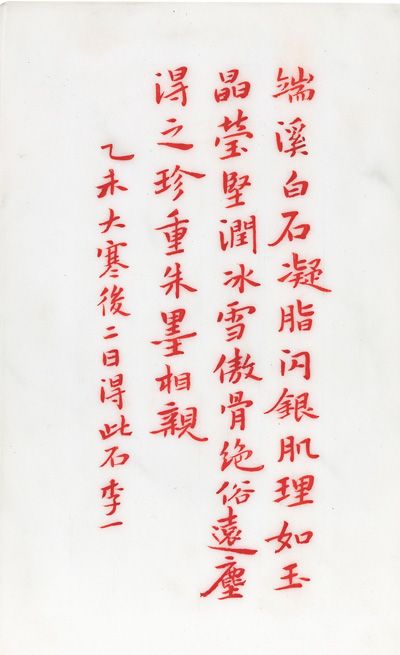 端溪白石凝脂闪銀肌理如玉
晶莹堅潤冰雪傲骨绝俗遠塵
得之珍重朱墨相親
乙未大寒後二日得此石李一